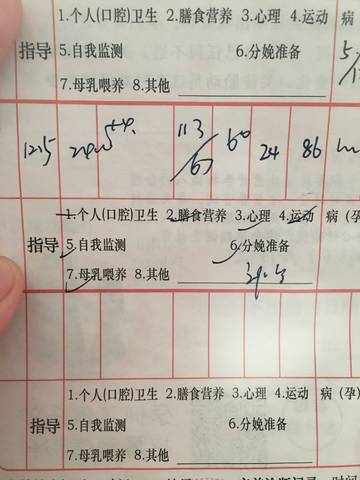 1.个人(口腔)卫生 2.膳食营养 3.心理 4.运动 病
指导 5.自我监测 6.分娩准备
7.母乳喂养 8.其他
12.15 113/67 60 24 86
1.个人(口腔)卫生 2.膳食营养 3.心理 4.运动 病(孕)
指导 5.自我监测 6.分娩准备
7.母乳喂养 8.其他
1.个人(口腔)卫生 2.膳食营养 3.心理 4.运动 病(孕)
指导 5.自我监测 6.分娩准备
7.母乳喂养 8.其他